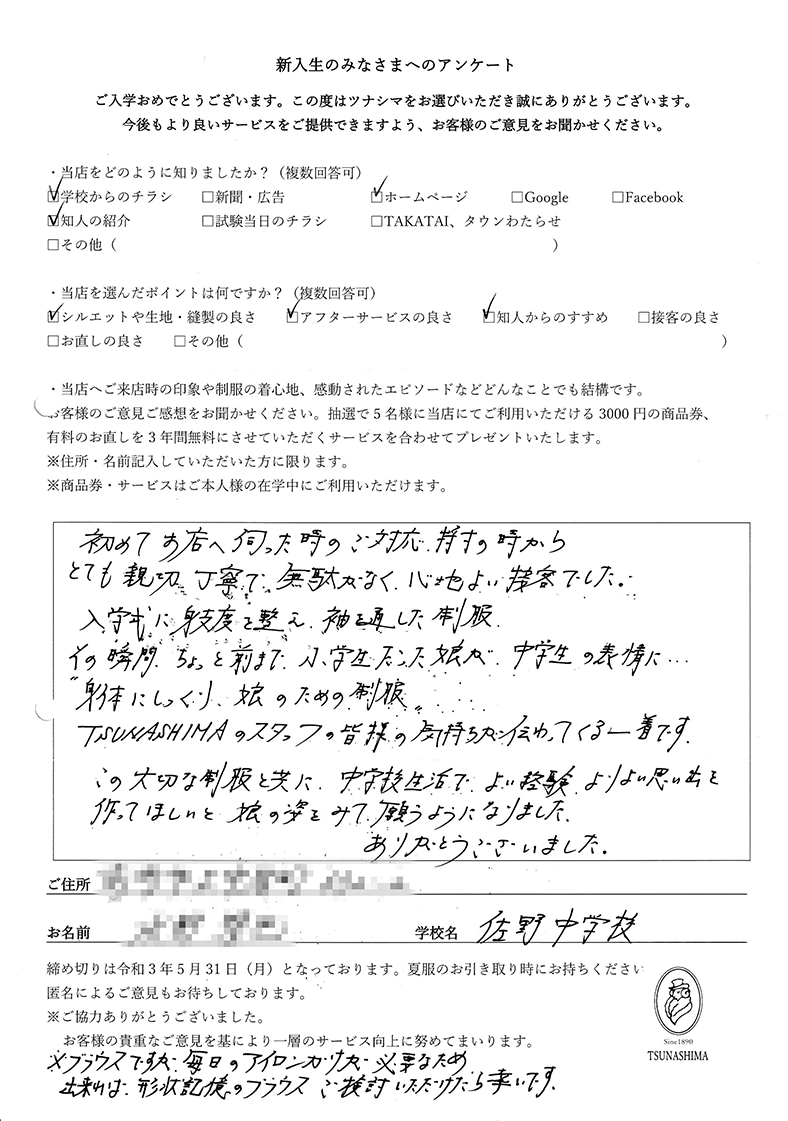 新入生のみなさまへのアンケート
ご入学おめでとうございます。この度はツナシマをお選びいただき誠にありがとうございます。
今後もより良いサービスをご提供できますよう、お客様のご意見をお聞かせください。
・当店をどのように知りましたか？（複数回答可）
☑学校からのチラシ □新聞・広告 ☑ホームページ □Google □Facebook
☑知人の紹介 □試験当日のチラシ □TAKATAI、タウンわたらせ
□その他（ ）
・当店を選んだポイントは何ですか？（複数回答可）
☑シルエットや生地・縫製の良さ ☑アフターサービスの良さ ☑知人からのすすめ □接客の良さ
□お直しの良さ □その他（ ）
・当店へご来店時の印象や制服の着心地、感動されたエピソードなどどんなことでも結構です。
お客様のご意見ご感想をお聞かせください。抽選で5名様に当店にてご利用いただける3000円の商品券、
有料のお直しを3年間無料にさせていただくサービスを合わせてプレゼントいたします。
※住所・名前記入していただいた方に限ります。
※商品券・サービスはご本人様の在学中にご利用いただけます。
初めてお店へ伺った時のご対応、採寸の時から
とても親切、丁寧で、無駄がなく、心地よい接客でした。
入学式に身支度を整え、袖を通した制服、
その瞬間、ちょっと前まで、小学生だった娘が、中学生の表情に…
"身体にしっくり、娘のための制服"
TSUNASHIMAのスタッフの皆様の気持ちが伝わってくる一着です。
この大切な制服と共に、中学校生活で、よい経験、よりよい思い出を
作ってほしいと娘の姿をみて、願うようになりました。
ありがとうございました。
ご住所
お名前 学校名 佐野中学校
締め切りは令和3年5月31日（月）となっております。夏服のお引き取り時にお持ちください
匿名によるご意見もお待ちしております。
※ご協力ありがとうございました。
お客様の貴重なご意見を基により一層のサービス向上に努めてまいります。
Sine1890
TSUNASHIMA
※ブラウスですが、毎日のアイロンがけが必要なため
出来れば、形状記憶のブラウス ご検討いただけたら幸いです。